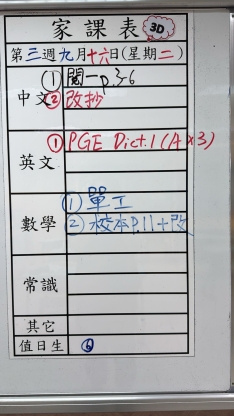 家課表 3D
第三週九月十六日(星期二)
中文 ① 閱一p.3-6
② 改抄
英文 ① PGE Dict.1 (A×3)
數學 ① 單工
② 校本P.11+改
常識
其它
值日生 ⑥